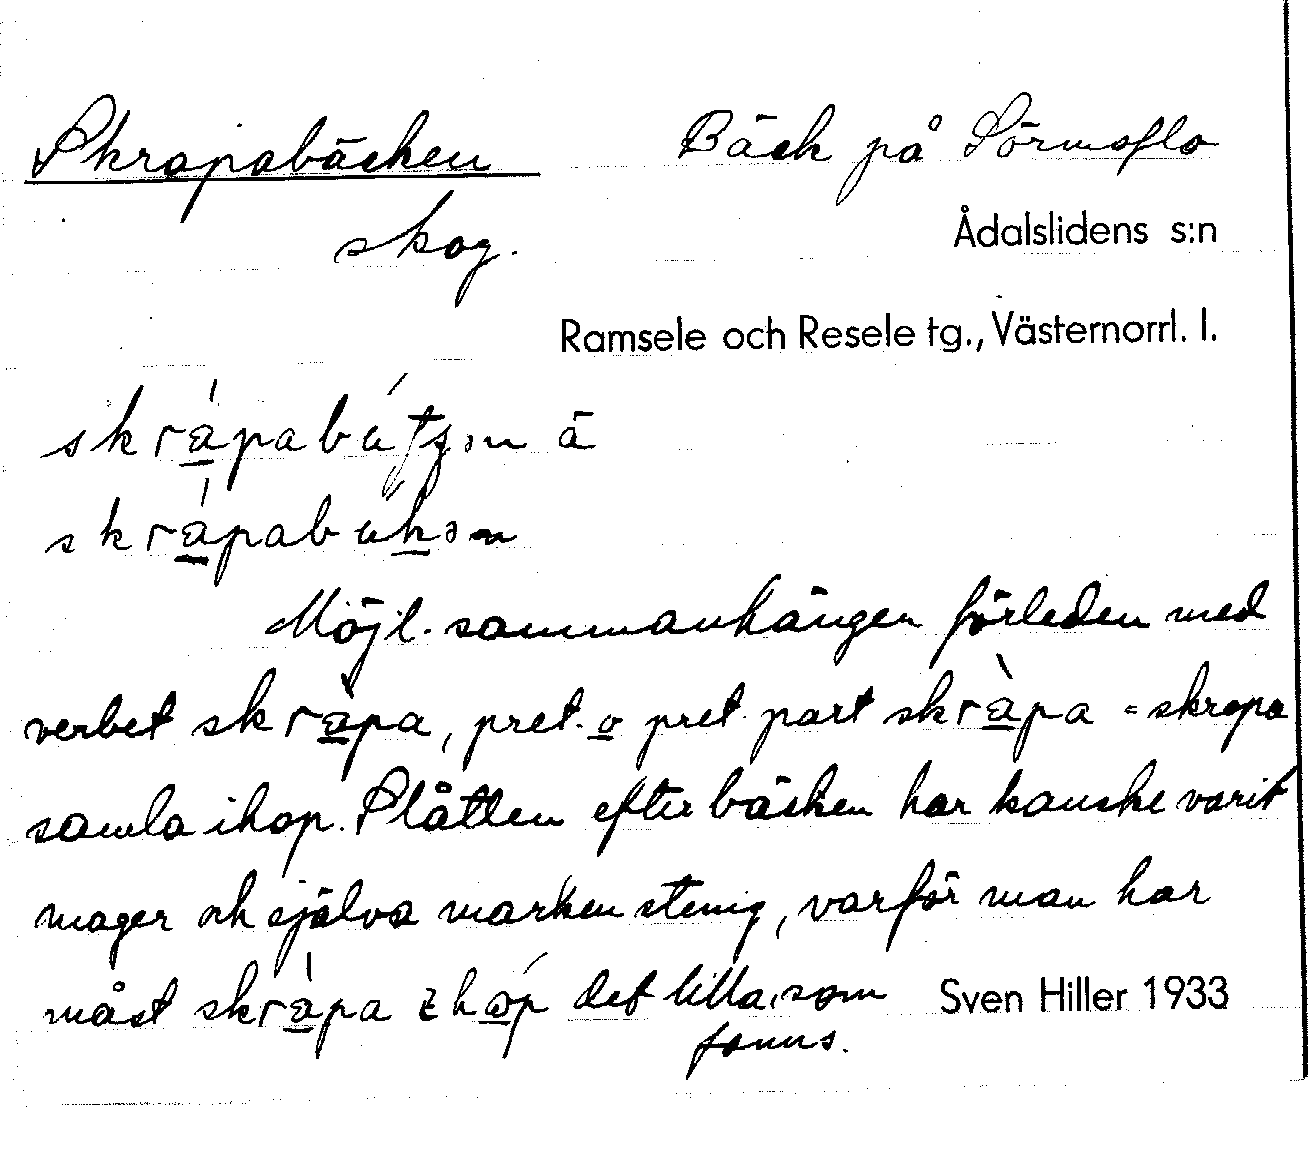 Skrapabäcken Bäck på Sörmoflo
skog. Ådalslidens s:n
Ramsele och Resele tg., Västernorrl. l.
skràpabútʒən ä
skràpabukən
Möjl. sammanhänger förleden med
verbet skràpa, pret. o pret part skràpa = skrapa
samla ihop. Slåtten efter bäcken har kanske varit
mager och själva marken stenig, varför man har
måst skràpa ihóp det lilla, som Sven Hiller 1933
fanns.